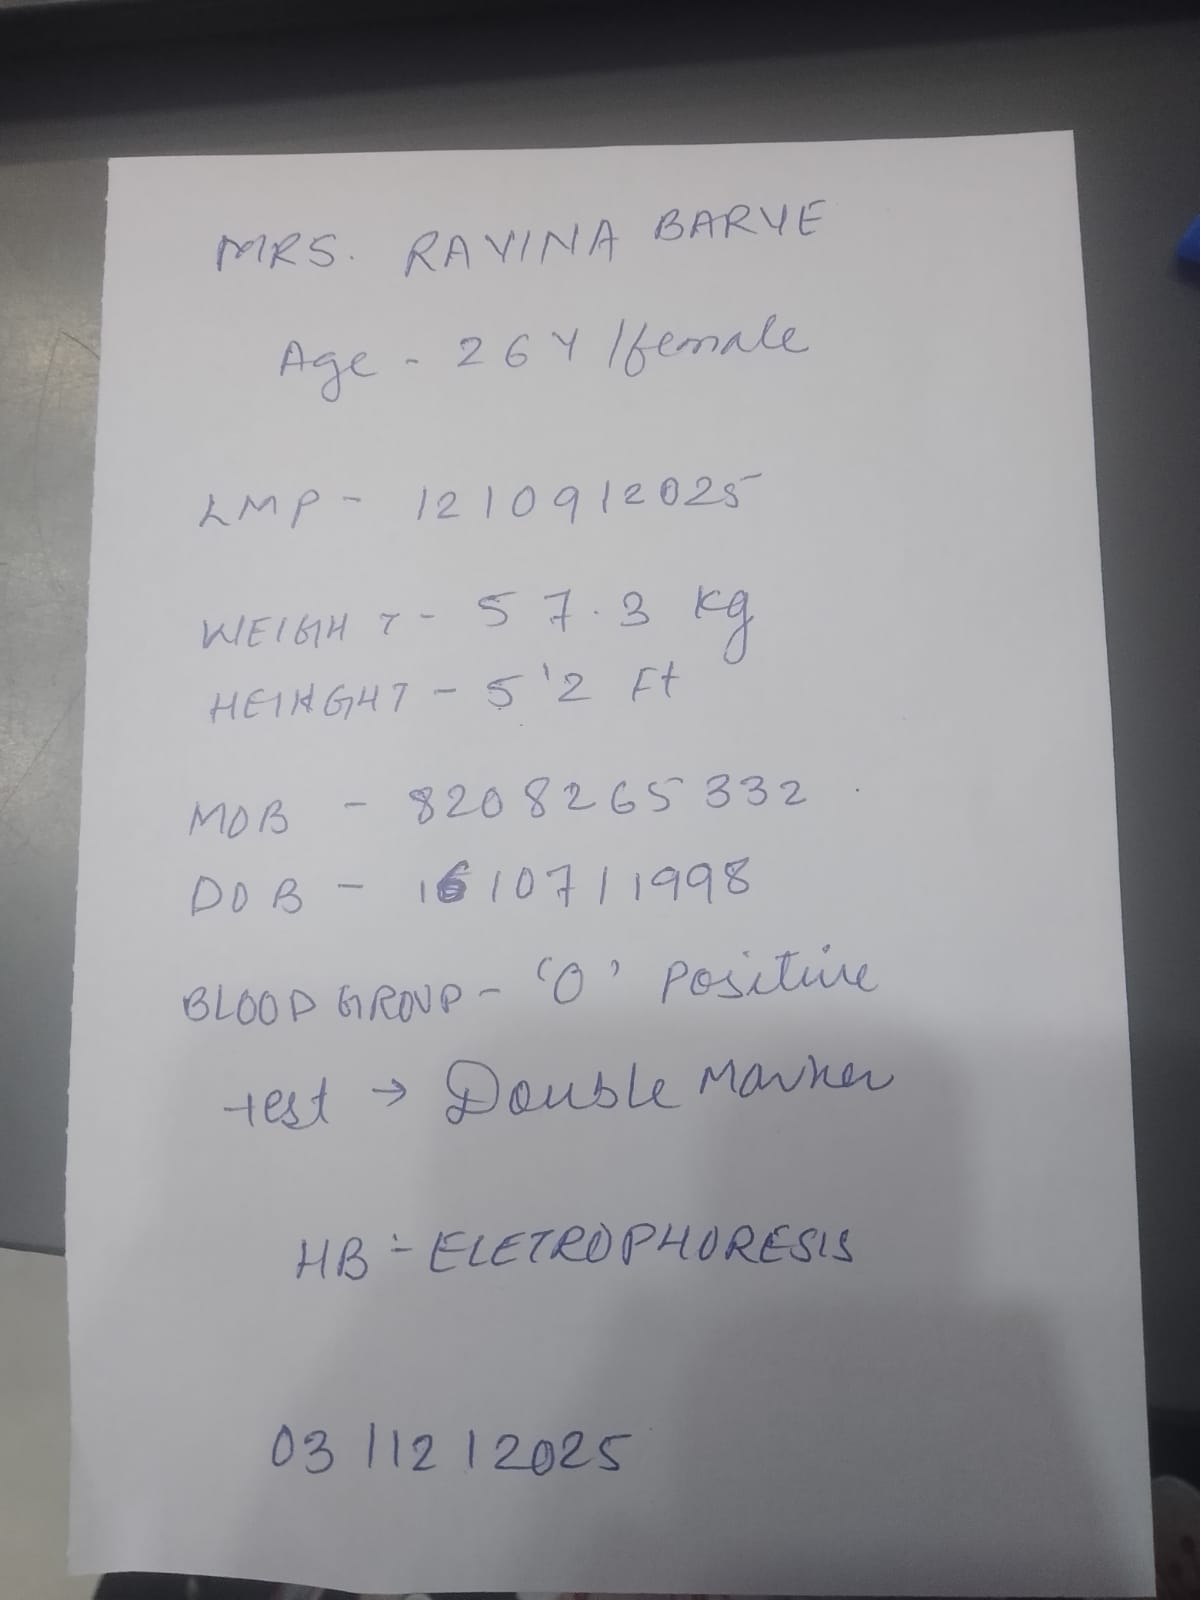 MRS. RAVINA BARVE
Age - 26 Y / female
LMP - 12/09/2025
WEIGHT - 57.3 kg
HEIHGHT - 5'2 Ft
MOB - 8208265332
DOB - 16/07/1998
BLOOD GROUP - 'O' Positive
test → Double Marker
HB - ELETROPHORESIS
03/12/2025